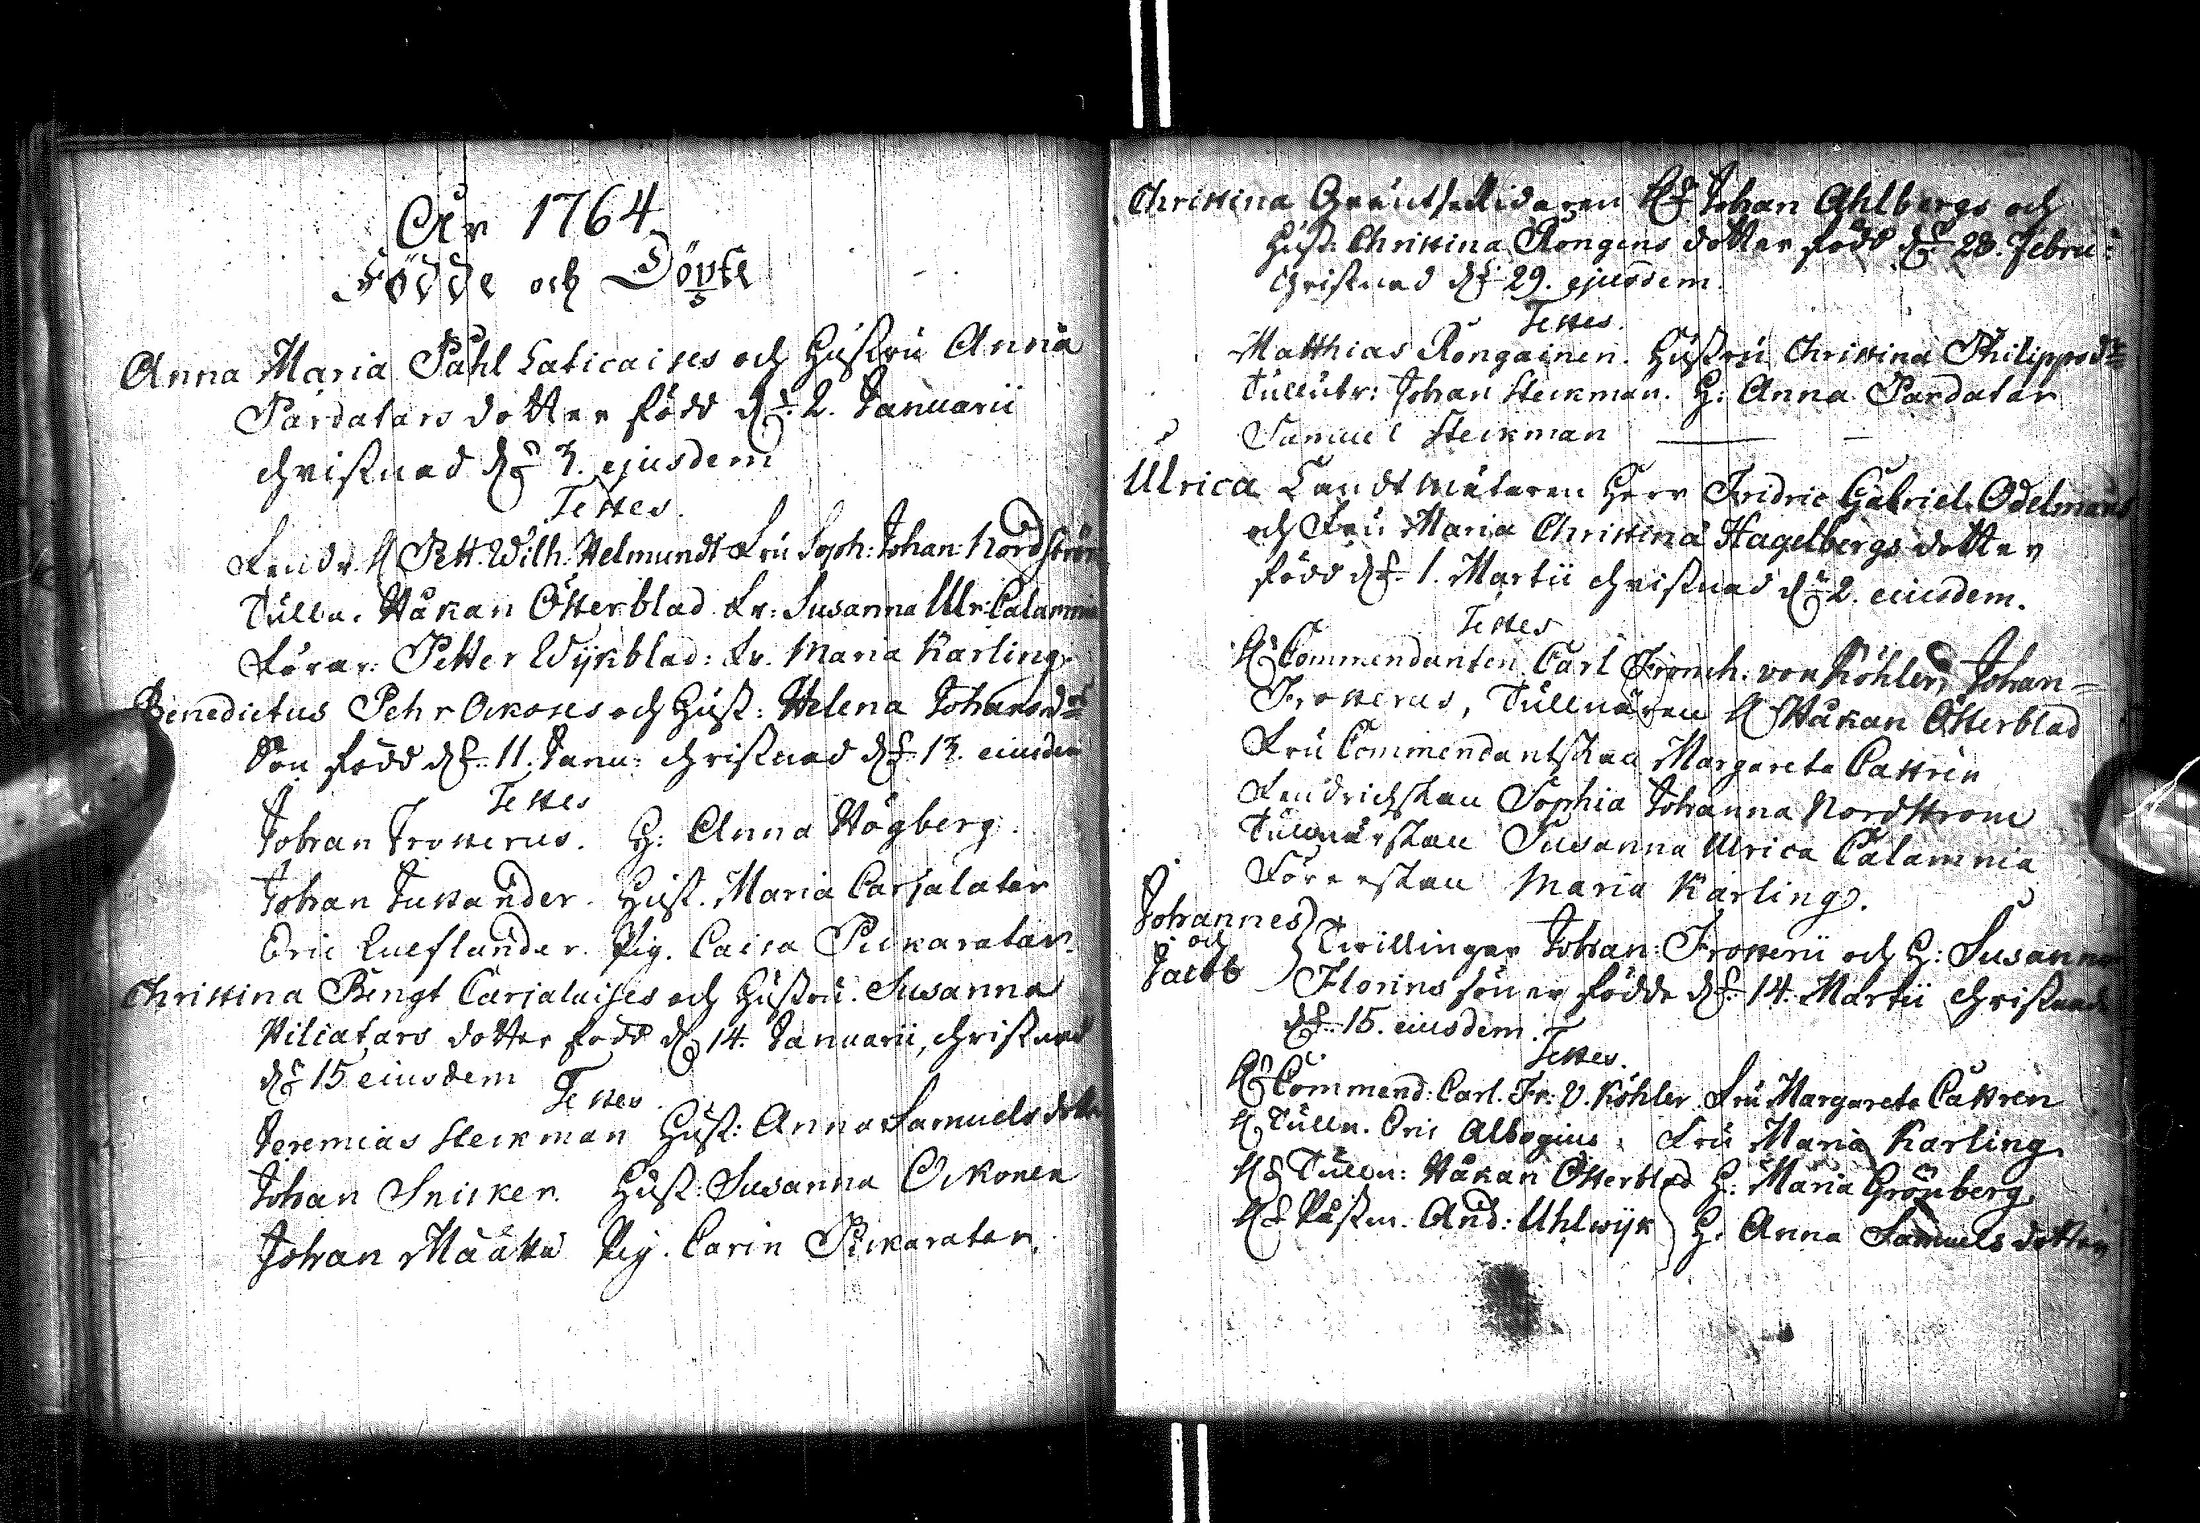 År 1764
Födde och Döpte
Anna Maria Påhl Laticaises och Hustru Anna
Pardatars dotter född d: 2. Januarii
christnad d: 3. ejusdem
Testes.
Fendr. H Pett. Wilh: Helmundt Fru Soph: Johan: Nordström
Tulln. Håkan Österblad. Fr: Susanna Ulr: Calamnia
Förar: Petter Wijkblad: Fr. Maria Karling.
Benedictus Pehr Ockoses och Hust: Helena Johansdr
Son född d: 11. Janu: christnad d: 13. eiusdem
Testes
Johan Frosterus. H: Anna Högberg.
Johan Tussander. Hust. Maria Carjalatar
Eric Pig. Caisa Pickaratar.
Christina Bengt Carjalaises och Hustru. Susanna
Hiliatars dotter född d 14. Januarii, christnad
d: 15 eiusdem
Testes.
Jeremias Steckman Hust: Anna Samuels dotter
Johan Snicker. Hust: Susanna Ockonen
Johan Määttä Pig. Carin Pickaratar.
Christina Johan Ahlbergs och
Hust: Christina Rongens dotter född d: 28. Febru:
christnad d: 29. ejusdem.
Testes.
Matthias Rongainen. Hustru Christina Philippsdr
Johan Steckman. H: Anna Pardatar
Samuel Steckman
Ulrica Landtmätaren Herr Fridric Gabriel Odelmans
och Fru Maria Christina Hagelbergs dotter
född d: 1. Martii christnad d: 2. eiusdem.
Testes
H: Commendanten Carl von Köhler, Johan
Frosterus, Tullnären H Håkan Österblad
Fru Commendantskan Margareta Cattrin
Fendrichskan Sophia Johanna Nordström
Tullnärskan Susanna Ulrica Calamnia
Förerskan Maria Karling.
Johannes
och
Jacob
Twillingar Johan Frosterii och H: Susanna
Florins söner födde d: 14. Martii christnade
d: 15. eiusdem.
Testes.
H: Commend: Carl. Fr: V. Köhler Fru Margareta Cattrin
H. Tulln. Eric Albogius. Fru Maria Karling
H: Tulln: Håkan Österblad H: Maria Grönberg.
H: And: Uhlwijk H. Anna Samuels dotter